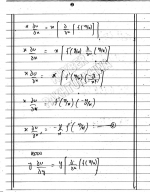 x ∂u/∂x = x [ ∂/∂x { f (y/x) } ]
x ∂u/∂x = x [ f'(y/x) ∂/∂x (y/x) ]
x ∂u/∂x = x [ f'(y/x) (-y/x²) ]
x ∂u/∂x = f'(y/x) (-y/x)
x ∂u/∂x = -y/x f'(y/x)
now
y ∂u/∂y = y [ ∂/∂x { f (y/x) } ]